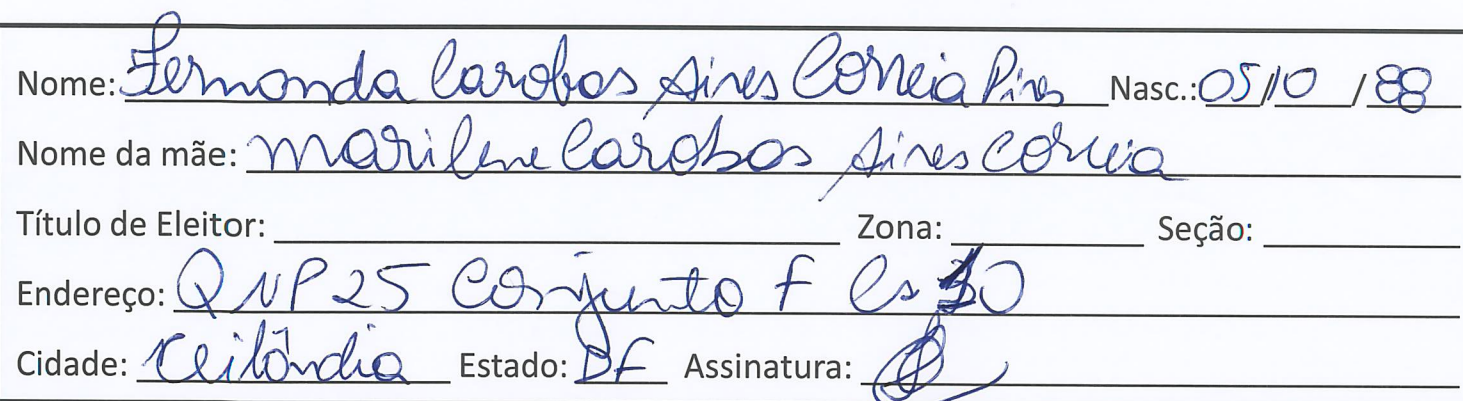 Nome: Fernanda Carobas Aires Correia Pires Nasc.: 05/10/88
Nome da mãe: Marilene Carobas Aires Correia
Título de Eleitor: Zona: Seção:
Endereço: QNP 25 Conjunto F Cs
Cidade: Ceilândia Estado: DF Assinatura: